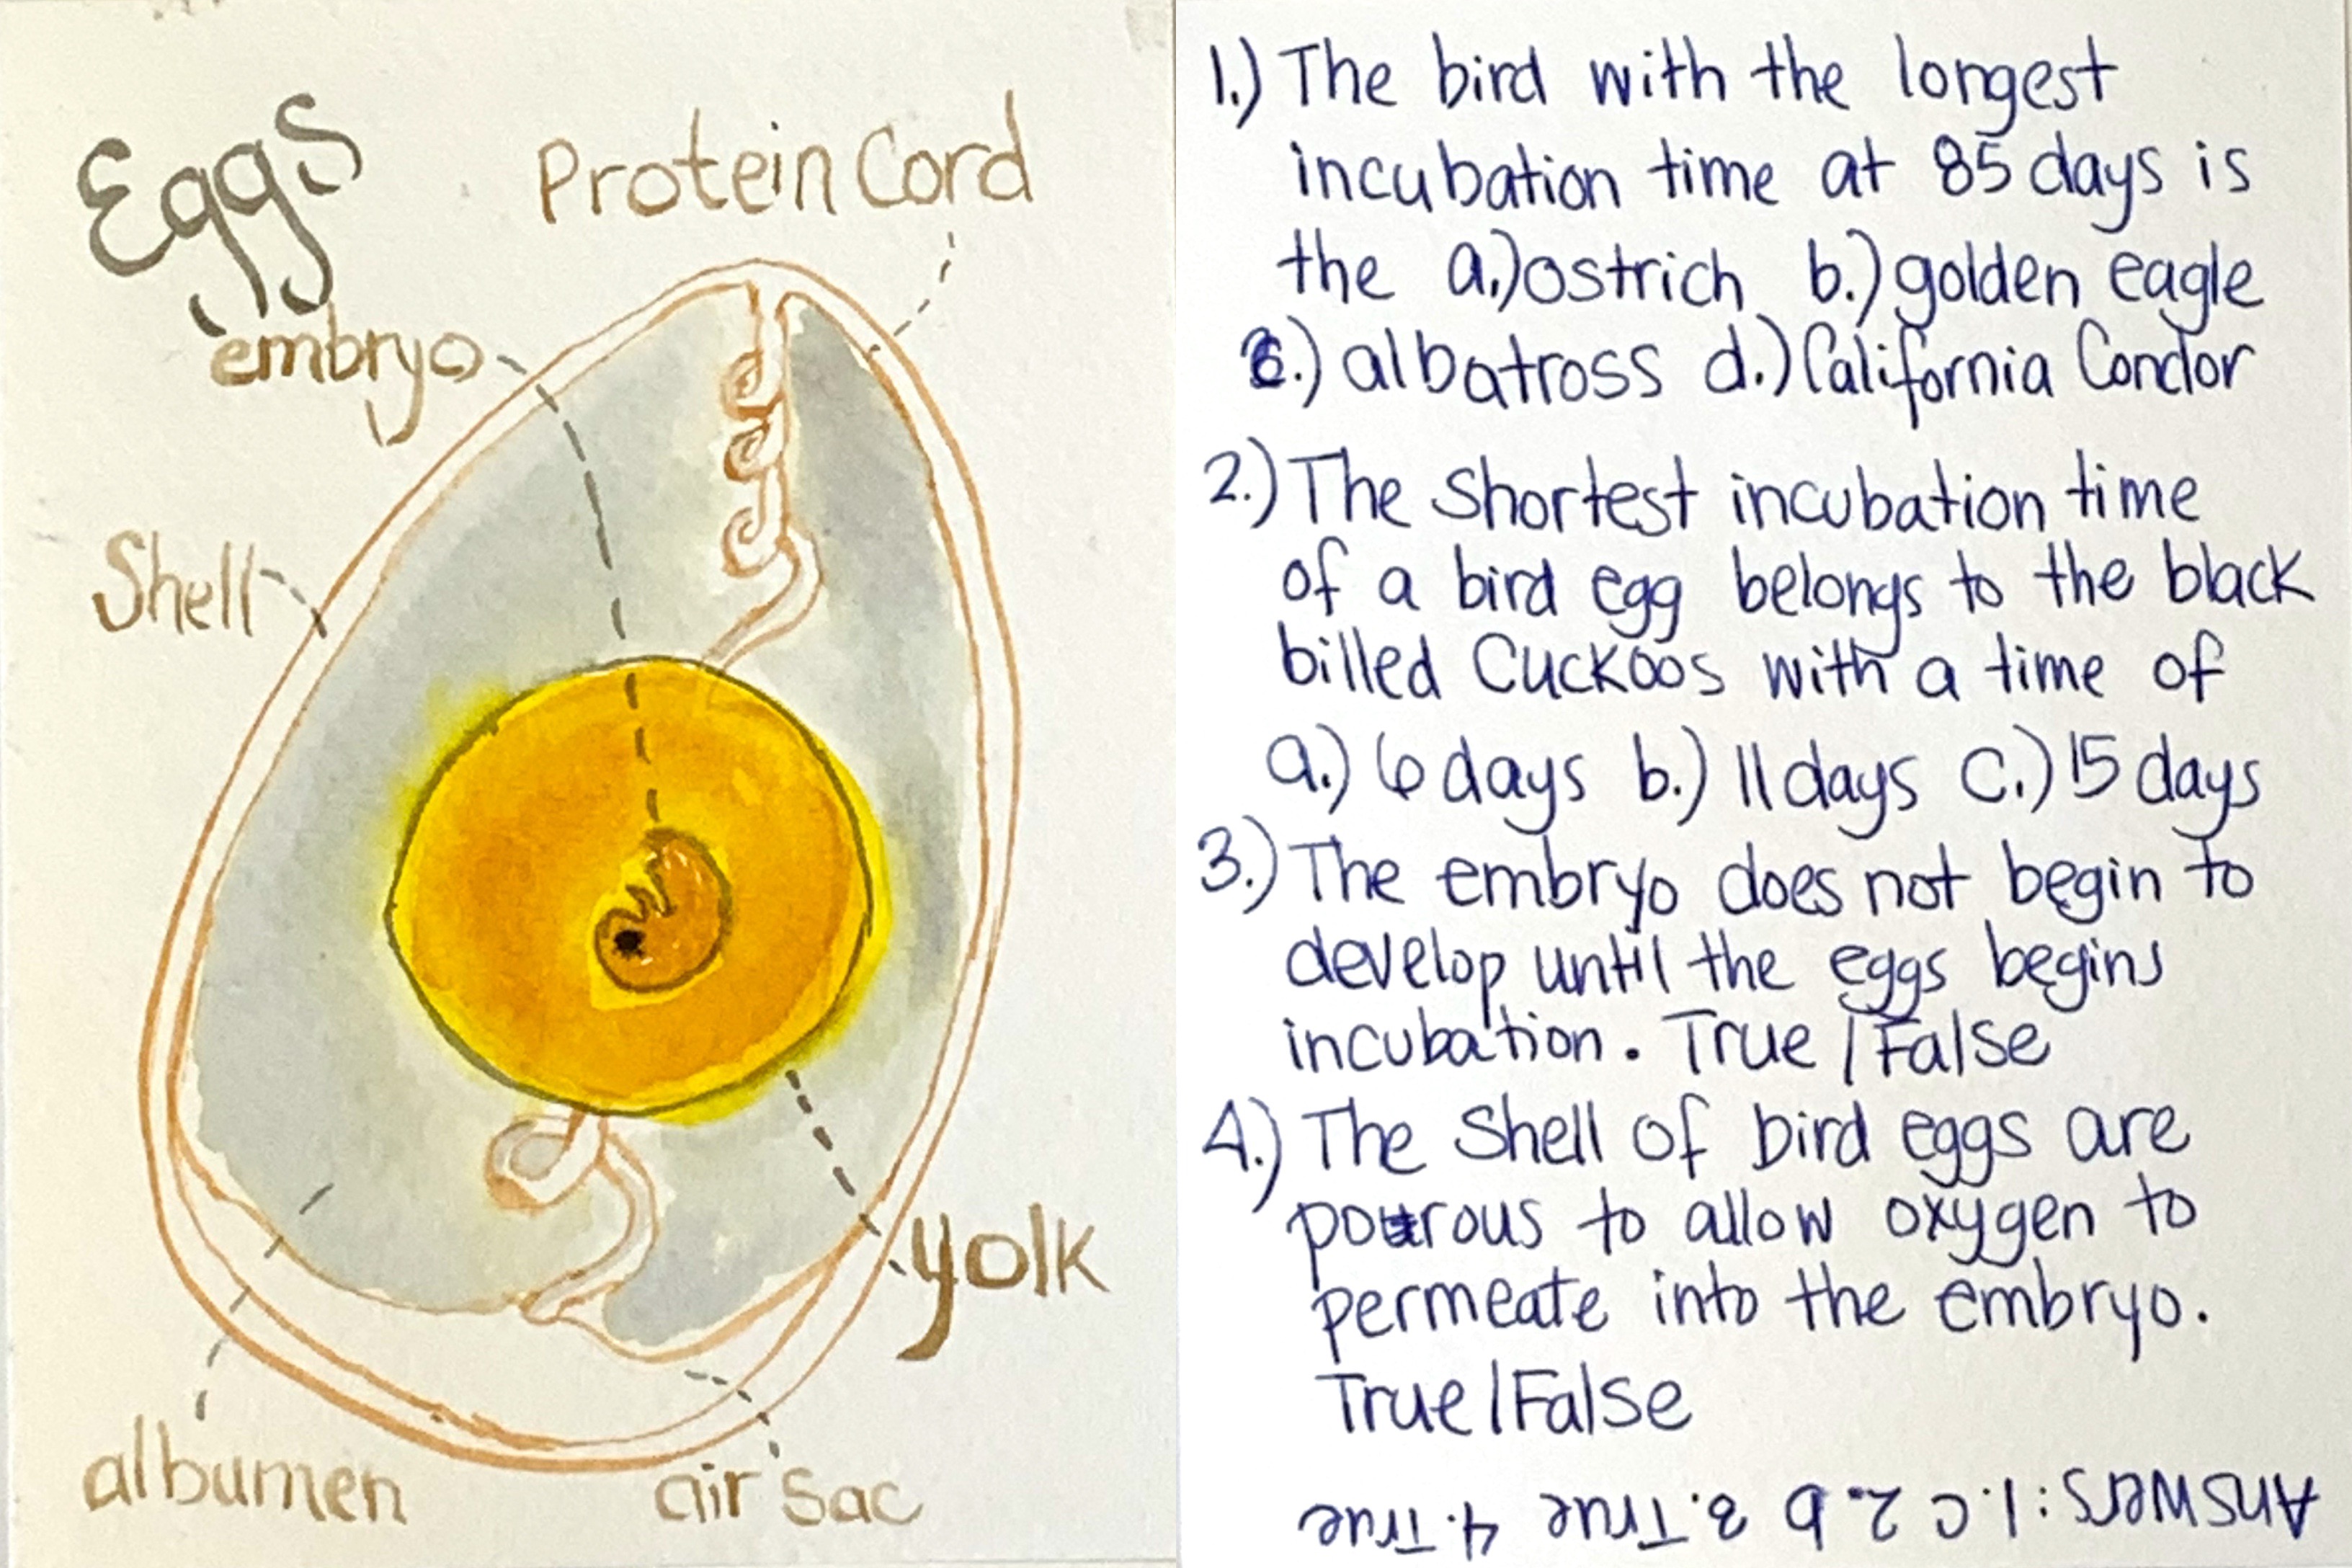 Eggs
Protein Cord
embryo
Shell
yolk
albumen
air Sac
1.) The bird with the longest
incubation time at 85 days is
the a.) ostrich b.) golden eagle
c.) albatross d.) California Condor
2.) The shortest incubation time
of a bird egg belongs to the black
billed Cuckoos with a time of
a.) 6 days b.) 11 days c.) 15 days
3.) The embryo does not begin to
develop until the eggs begins
incubation. True / False
4.) The Shell of bird eggs are
pourous to allow oxygen to
permeate into the embryo.
True / False
Answers: 1. c 2. b 3. True 4. True